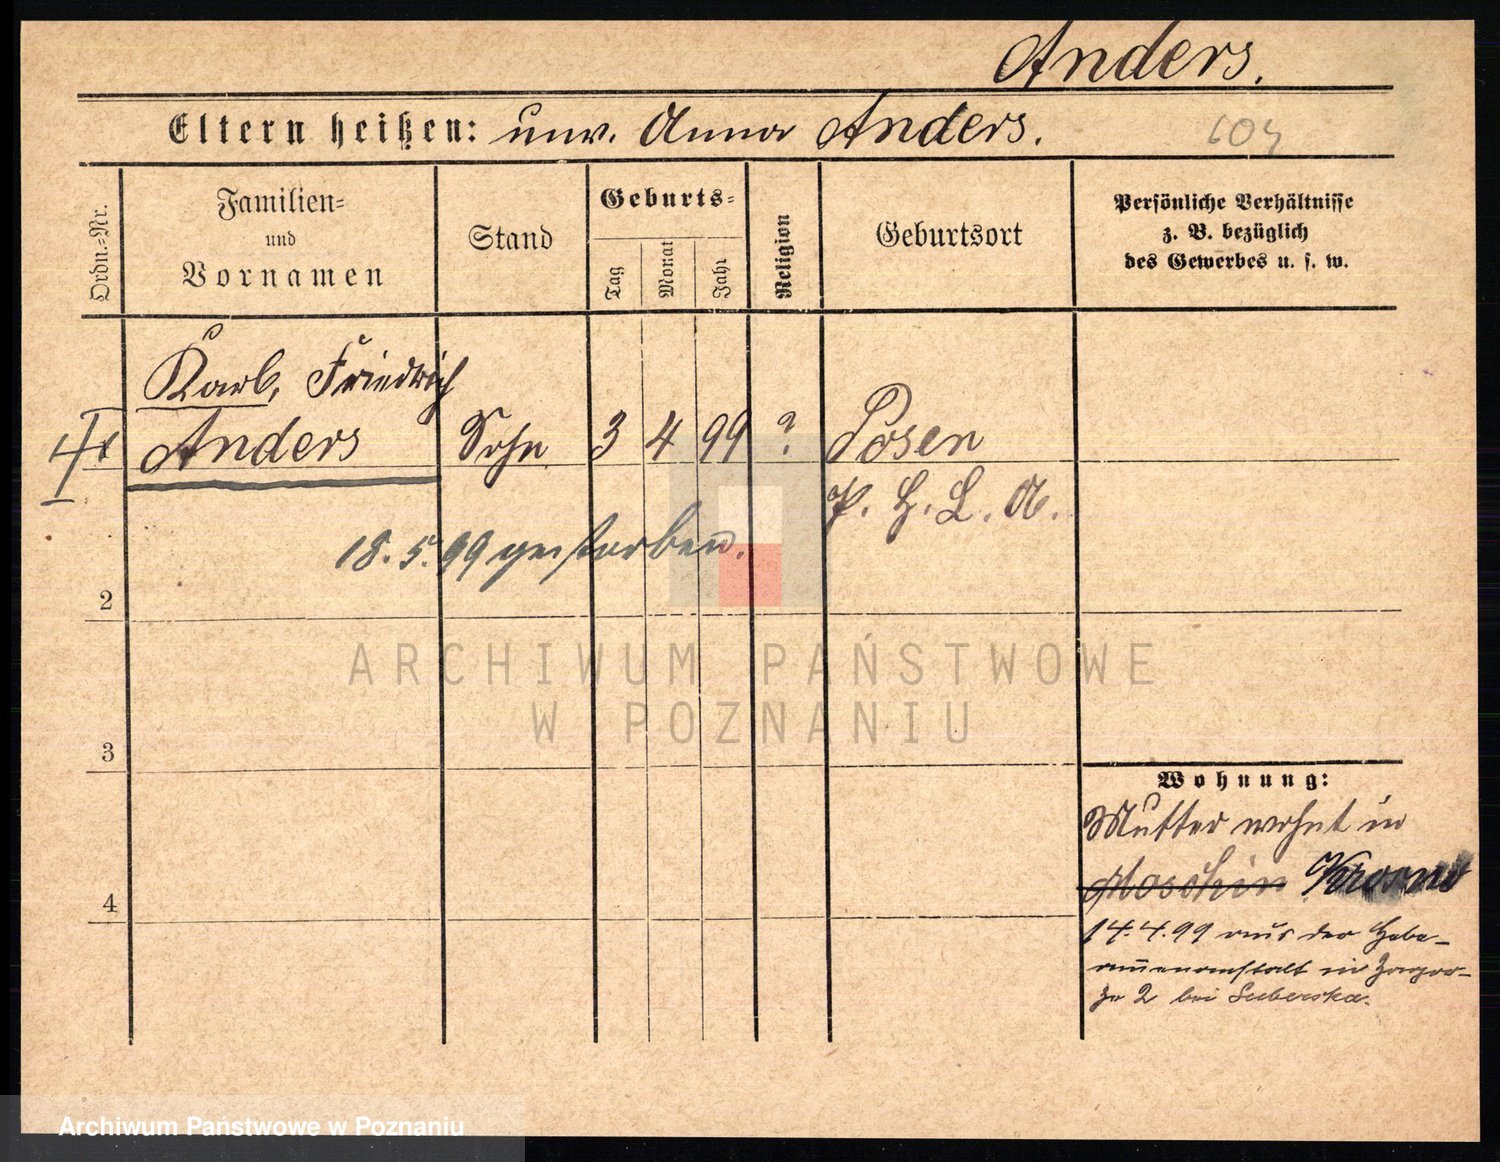 Anders.
Eltern heißen: unv. Anna Anders.
Ordn.=Nr.
Familien=
und
Vornamen
Stand
Geburts=
Tag
Monat
Jahr
Religion
Geburtsort
Persönliche Verhältnisse
z. B. bezüglich
des Gewerbes u. s. w.
Karl, Friedrich
Anders
Sohn
3
4
99
?
Posen
P. H. L. A.
18. 5. 99 gestorben.
2
3
4
ARCHIWUM PAŃSTWOWE
W POZNANIU
Wohnung:
Mutter wohnt in
Moschin
14. 4. 99 aus der Heba-
mmenanstalt in Zagor-
ze 2 bei Suberska.
Archiwum Państwowe w Poznaniu